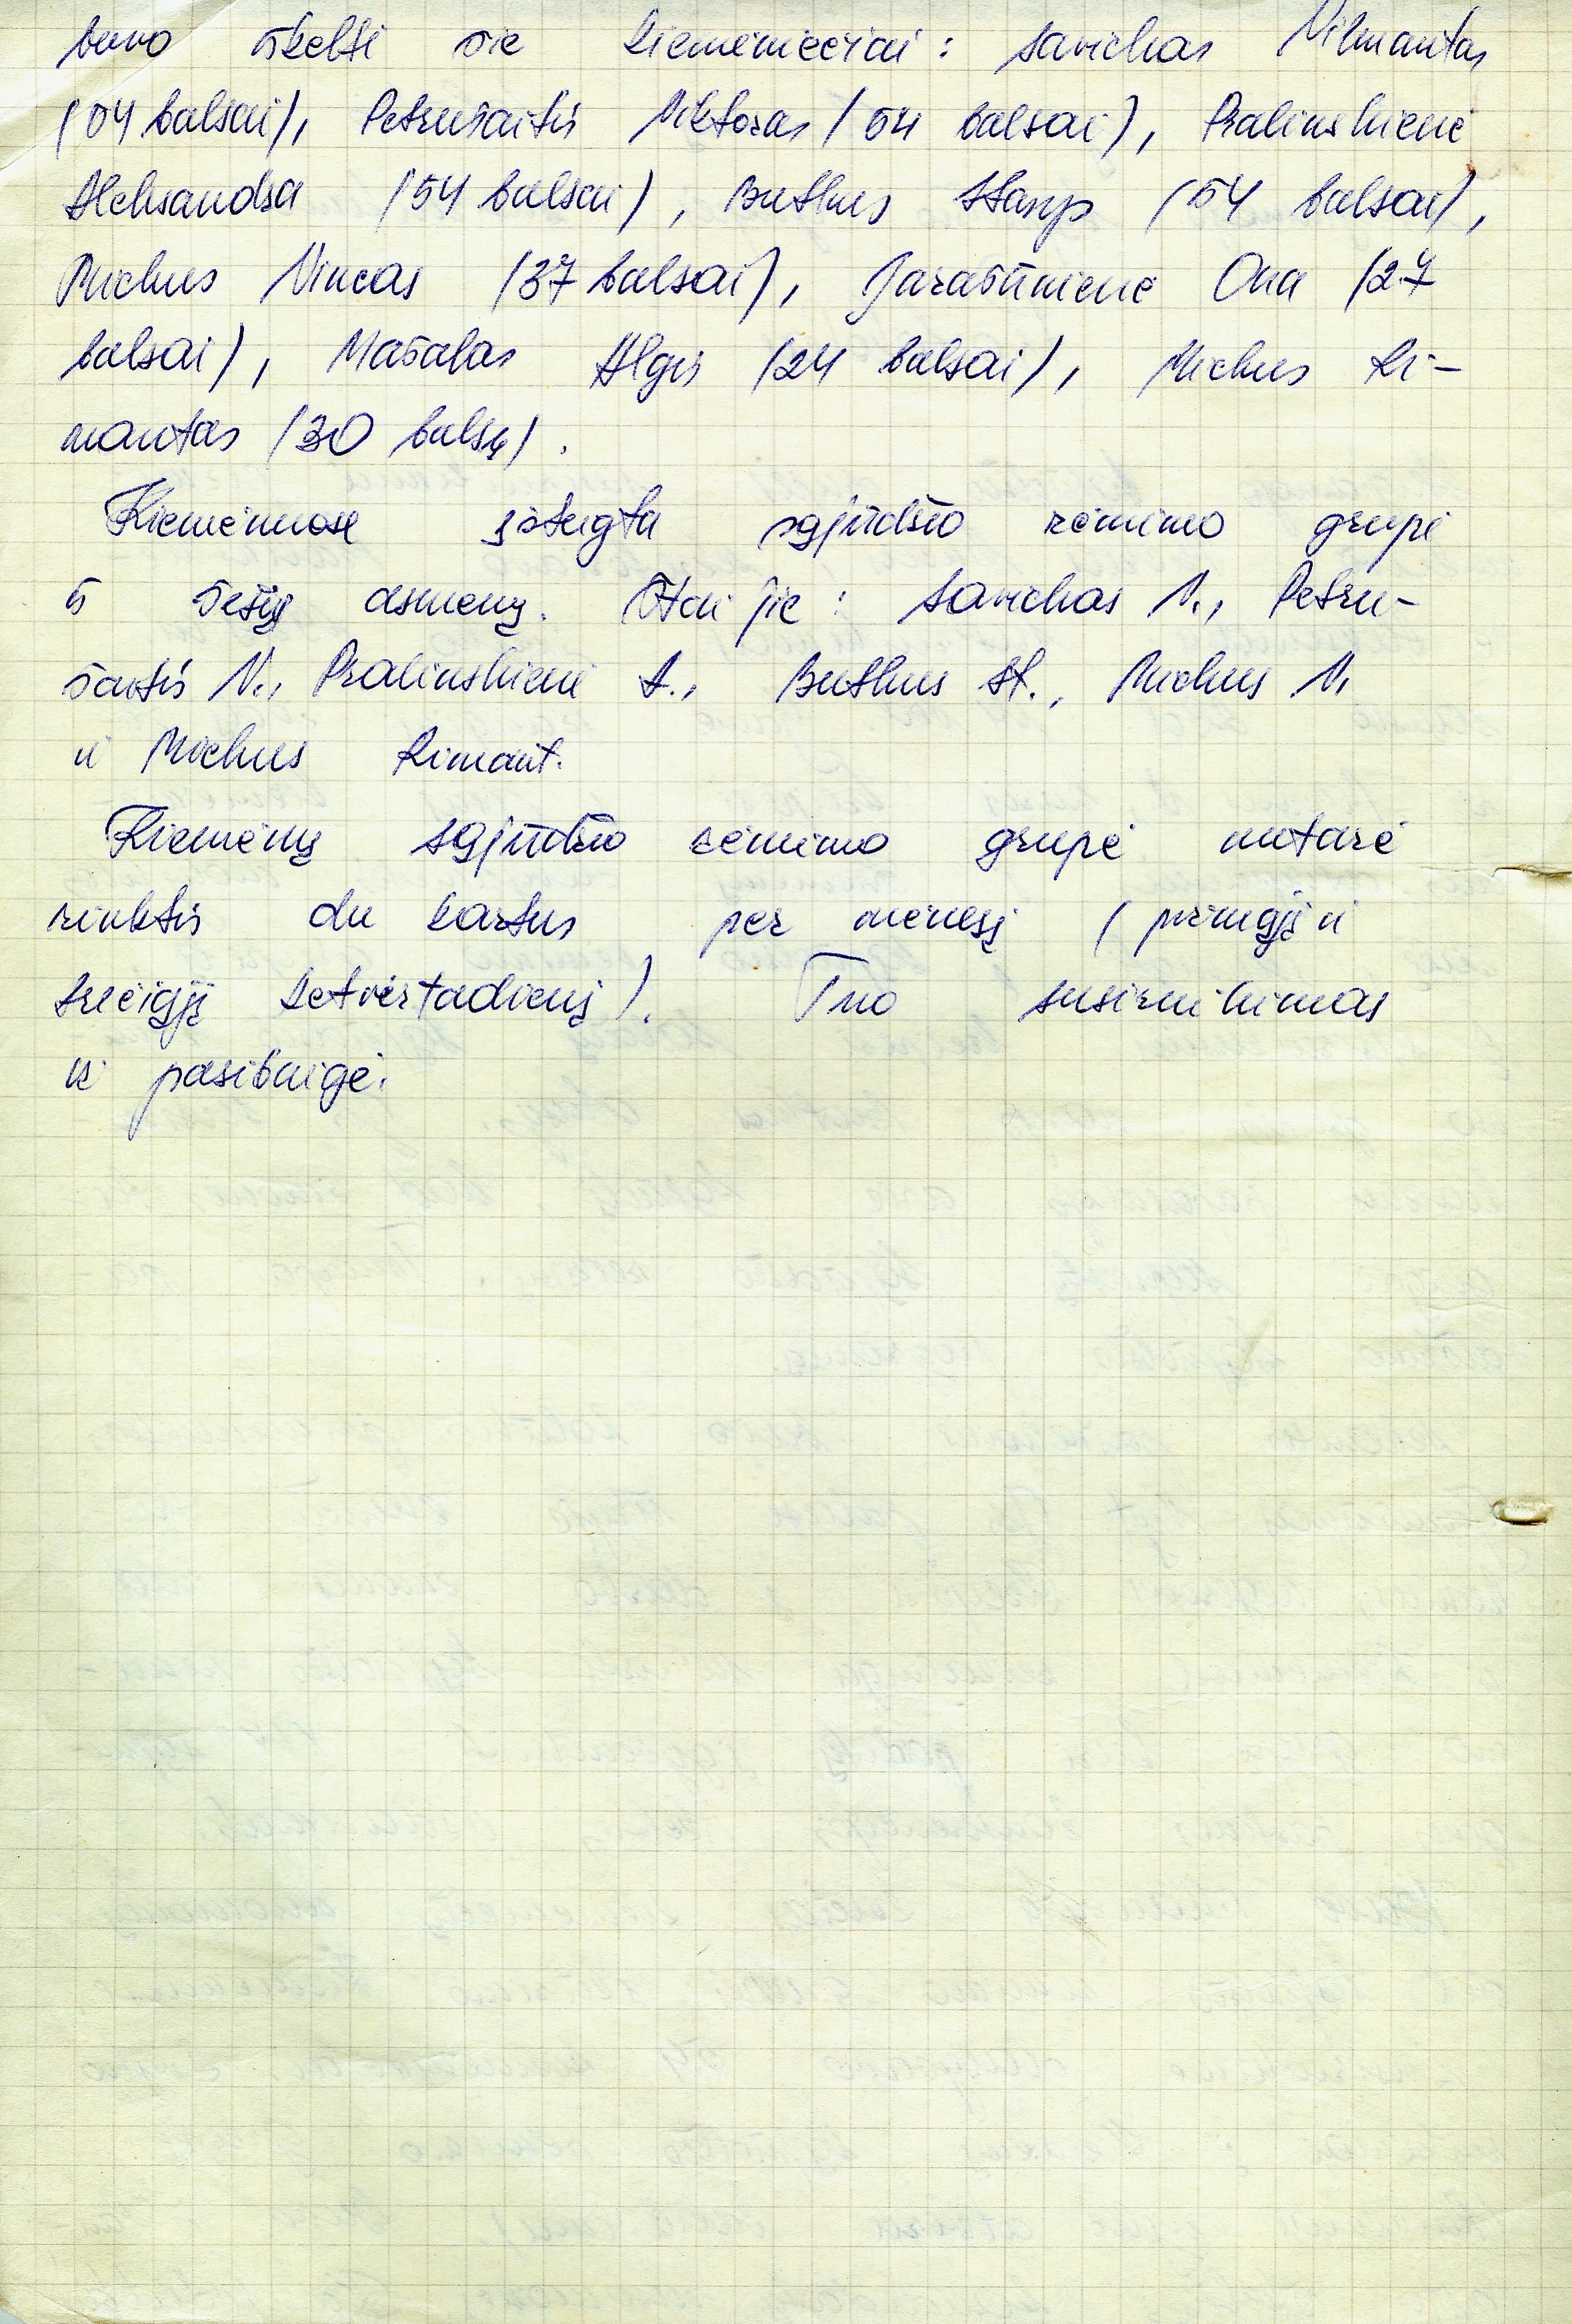 buvo iškelti šie kiemėniečiai: Savickas Vilmantas
(54 balsai), Petrušaitis Viktoras (54 balsai), Pralinskienė
Aleksandra (54 balsai), Butkus Stasys (54 balsai),
Mickus Vincas (37 balsai), Jarašūnienė Ona (27
balsai), Mašalas Algis (24 balsai), Mickus Ri-
mantas (30 balsų).
Kiemėnuose įsteigta sąjūdžio rėmimo grupė
iš šešių asmenų. Štai jie: Savickas V., Petru-
šaitis V., Pralinskienė A., Butkus St., Mickus V.
ir Mickus Rimant.
Kiemėnų sąjūdžio rėmimo grupė nutarė
rinktis du kartus per mėnesį (pirmąjį ir
trečiąjį ketvirtadienį). Tuo susirinkimas
ir pasibaigė.